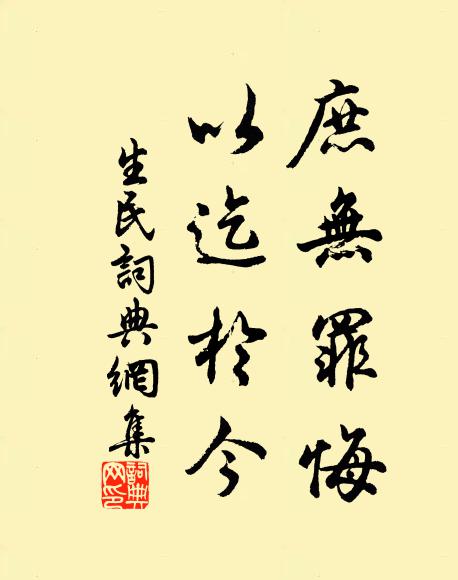 庶無罪悔
以迄於今
生民詞典網集
詞典網印